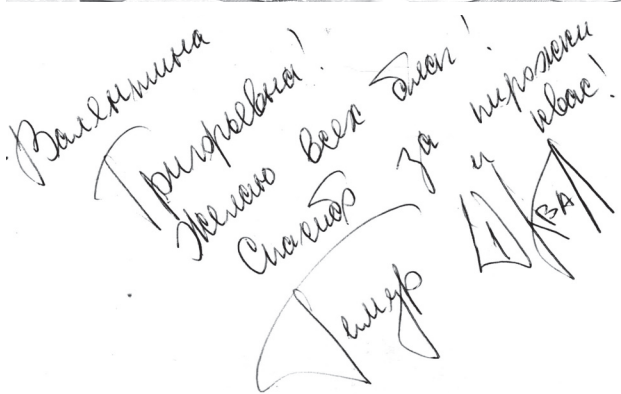 Валентина
Григорьевна!
Желаю всех благ!
Спасибо за пирожки
и квас!
Темур